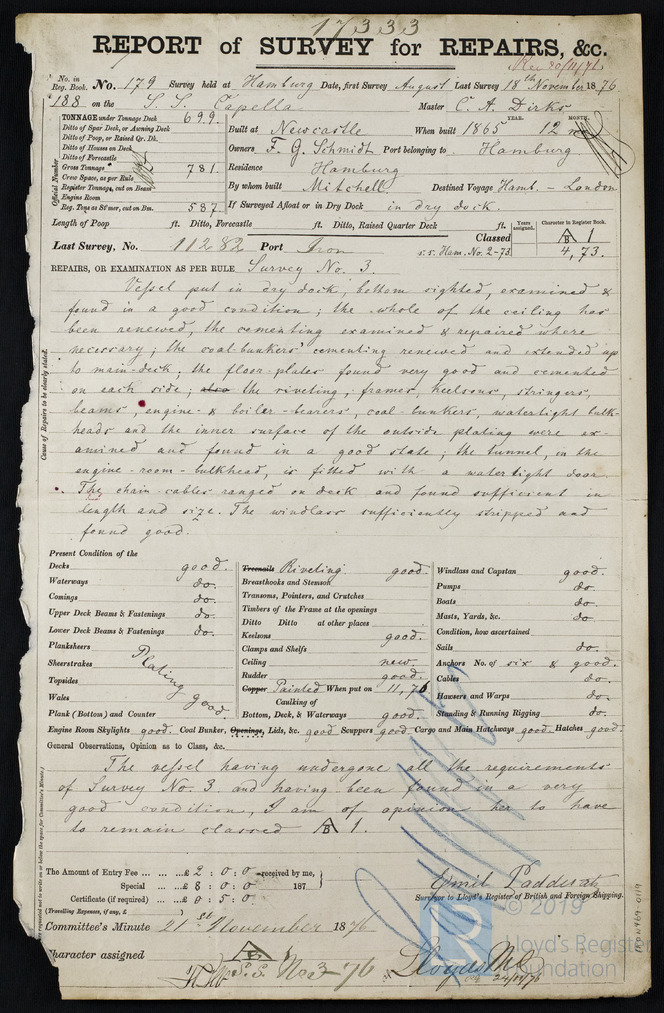 17333
REPORT of SURVEY for REPAIRS, &c.
Rec 20/11/76
No. in Reg. Book. No. 179 Survey held at Hamburg Date, first Survey August Last Survey 18th November 1876
188 on the S. S. Capella Master C. A. Dirks
TONNAGE under Tonnage Deck 699.
Ditto of Spar Deck, or Awning Deck
Ditto of Poop, or Raised Qr. Dk.
Ditto of Houses on Deck
Ditto of Forecastle
Gross Tonnage 781.
Crew Space, as per Rule
Register Tonnage, cut on Beam
Engine Room
Reg. Tons as St'mer, cut on Bm. 587
Official Number
Built at Newcastle When built 1865 YEAR. 12 MONTH.
Owners F. G. Schmidt Port belonging to Hamburg
Residence Hamburg
By whom built Mitchell Destined Voyage Hamb. - London
If Surveyed Afloat or in Dry Dock in dry dock.
Length of Poop ft. Ditto, Forecastle ft. Ditto, Raised Quarter Deck ft.
Years assigned. Character in Register Book.
Last Survey, No. 11282 Port Iron Classed A 1
B
s.s. Ham. No. 2-73 4,73.
REPAIRS, OR EXAMINATION AS PER RULE Survey No. 3.
Cause of Repairs to be clearly stated.
Vessel put in dry dock, bottom sighted, examined &
found in a good condition; the whole of the ceiling has
been renewed, the cementing examined & repaired where
necessary; the coal-bunkers' cementing renewed and extended up
to main-deck; the floor-plates found very good and cemented
on each side; also the riveting, frames, keelsons, stringers,
beams, engine- & boiler-bearers, coal-bunkers, watertight bulk-
heads and the inner surface of the outside plating were ex-
amined and found in a good state; the tunnel, in the
engine-room-bulkhead, is fitted with a watertight door.
They chain-cables ranged on deck and found sufficient in
length and size. The windlass sufficiently stripped and
found good.
Present Condition of the
Decks good.
Waterways do.
Comings do.
Upper Deck Beams & Fastenings do.
Lower Deck Beams & Fastenings do.
Planksheers
Sheerstrakes Plating good
Topsides
Wales
Plank (Bottom) and Counter
Treenails Riveting good.
Breasthooks and Stemson
Transoms, Pointers, and Crutches
Timbers of the Frame at the openings
Ditto Ditto at other places
Keelsons good.
Clamps and Shelfs
Ceiling new.
Rudder good.
Copper Painted When put on 11,76
Caulking of
Bottom, Deck, & Waterways good.
Windlass and Capstan good.
Pumps do.
Boats do.
Masts, Yards, &c. do.
Condition, how ascertained
Sails do.
Anchors No. of six & good.
Cables do.
Hawsers and Warps do.
Standing & Running Rigging do.
Engine Room Skylights good. Coal Bunker, Openings, Lids, &c. good Scuppers good. Cargo and Main Hatchways good. Hatches good.
General Observations, Opinion as to Class, &c.
The vessel having undergone all the requirements
of Survey No. 3 and having been found in a very
good condition, I am of opinion her to have
to remain classed A 1.
B
The Amount of Entry Fee £2 : 0 : 0 received by me,
Special £8 : 0 : 0 187
Certificate (if required) £0 : 5 : 0
(Travelling Expenses, if any, £ )
Emil Padderatz
Surveyor to Lloyd's Register of British and Foreign Shipping.
Committee's Minute 21st November 1876
Character assigned A 1
B
S.S. No 3-76
Lloyds MC
24/11/76
IRON469-0119
© 2019
Lloyd's Register
Foundation